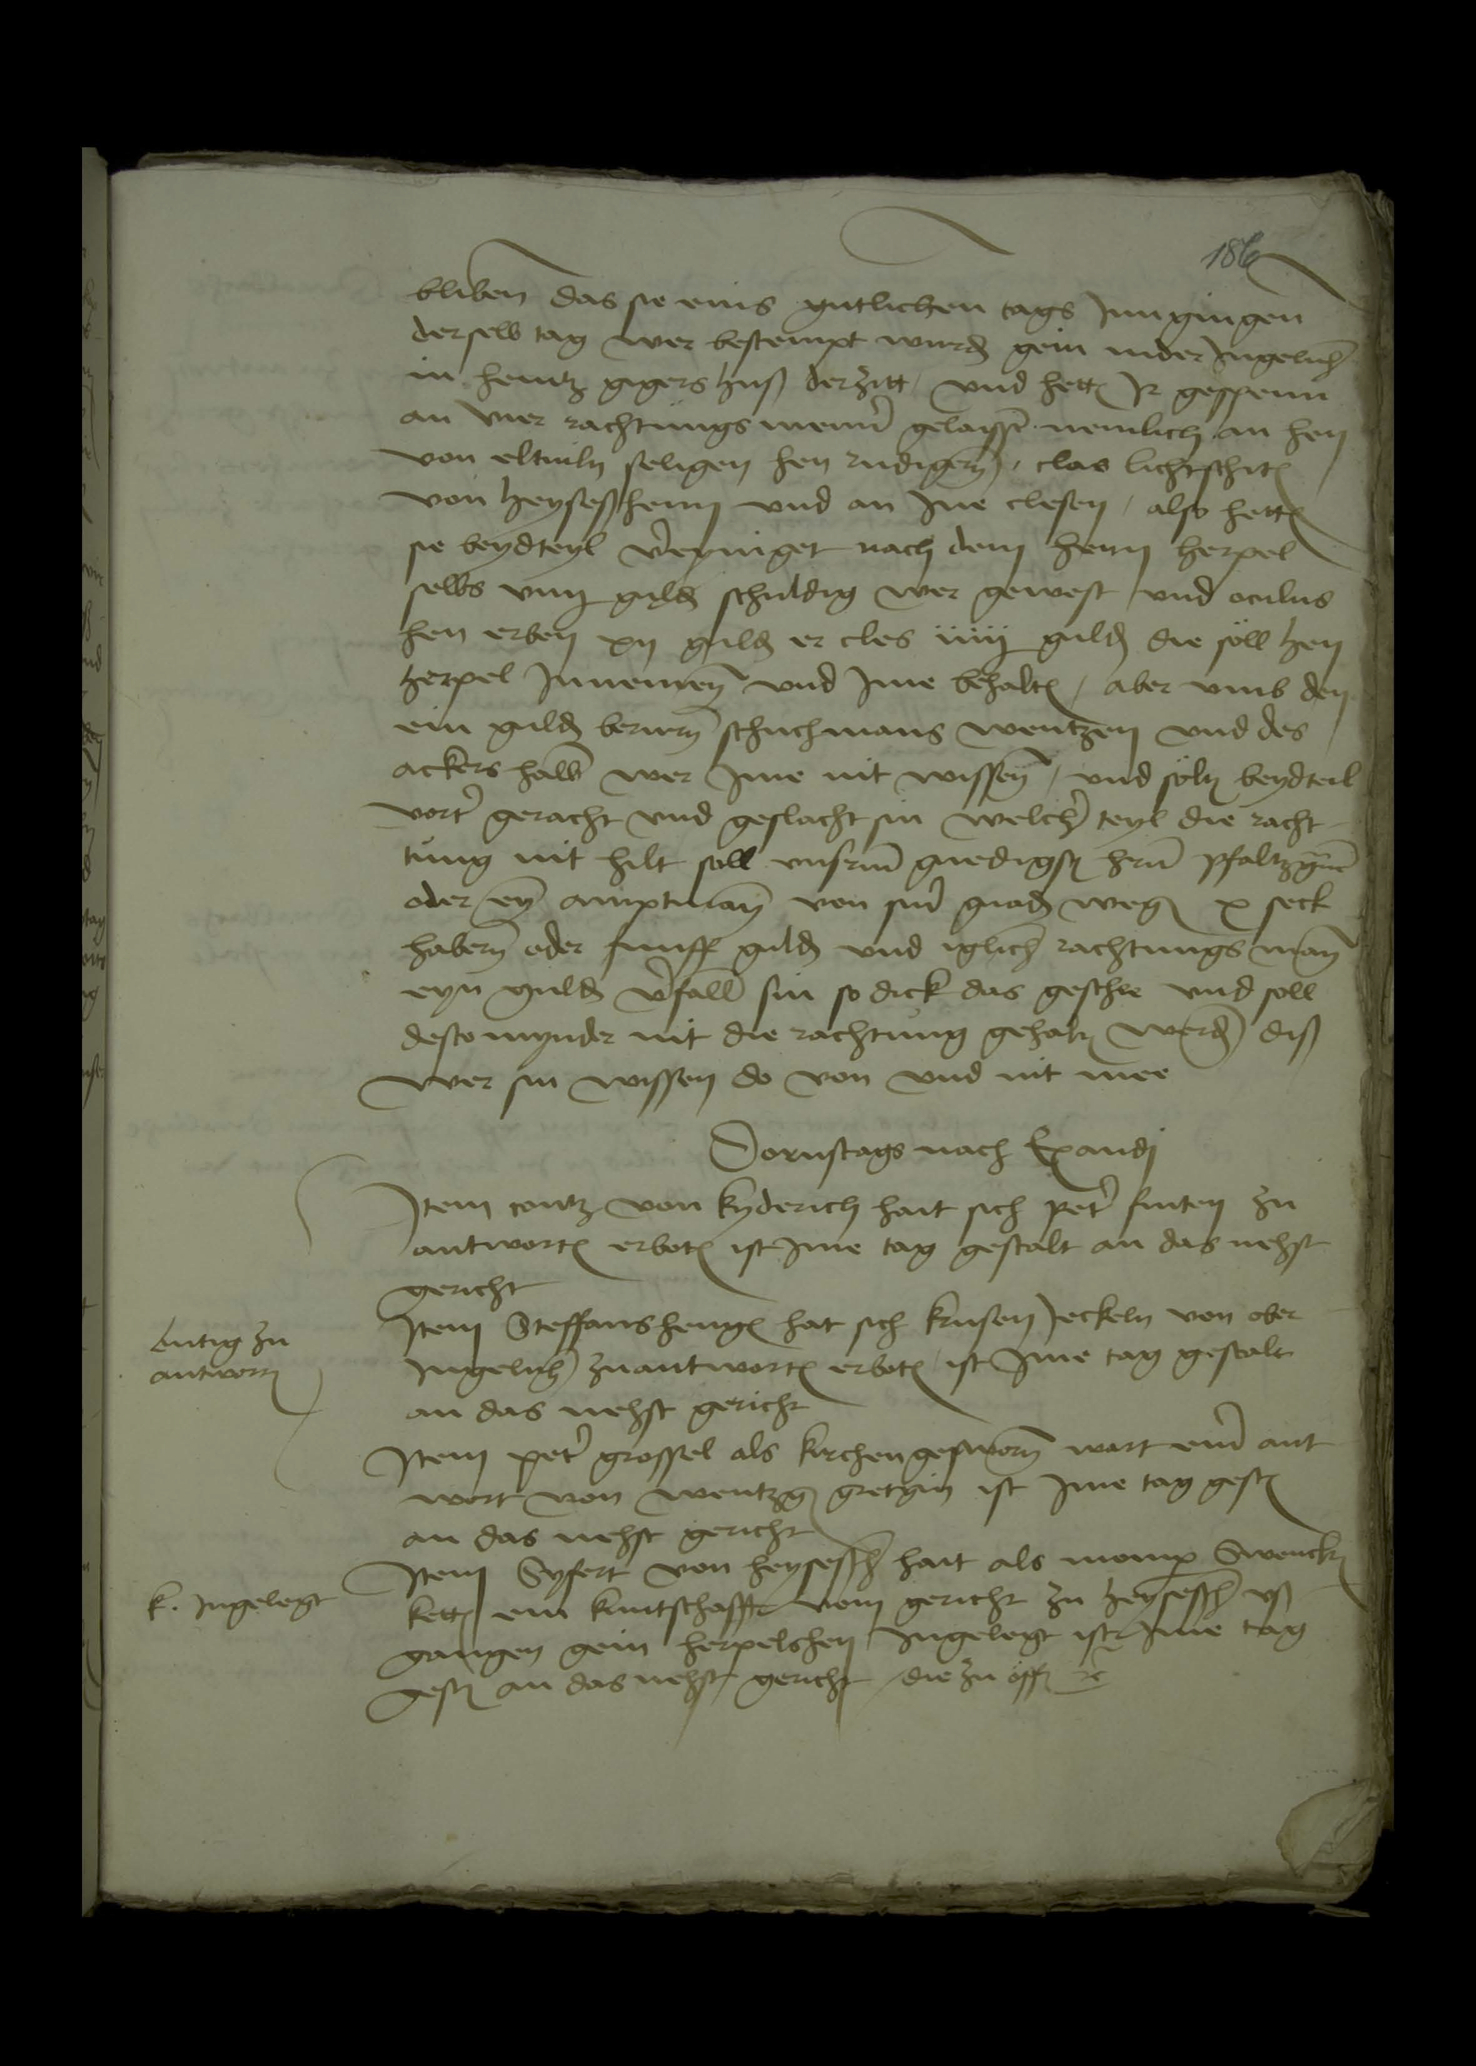 186
bliben das sie eins gutlichen tags Inngingen
derselb tag wer bestempt wurd gein nider Ingelnh
in hentz gigers huß der zitt und hett Ir gespenn
an vier rachtungs menn gelaissen nemlich an hen
von eltuiln seligen hen rudigern, clas lichtschit
von heyseßhem und an Ine clesen, also hett
sie beydteyl vereyniget nach dem henn herpel
selbs viiij guld schuldig wer gewest und oculus
hen erben xij guld er cles iiiij guld die soll hen
herpel Innemen und Ime behalt, aber umb den
ein guld beruren schuchmans wentzen und des
ackers halb wer Ime nit wissen, und soln beydteil
vort geracht und geslacht sin welch teyl die racht
tung nit hilt soll unserm gnedigst hern pfaltzgrav
oder eyn amptman von sin gnad weg x seck
habern oder funff guld und iglich rachtungs man
eyn guld verfall sin so dick das geschee und soll
desto mynder nit die rachtung gehalt werd diß
wer sin wissen do von und nit mee
Dornstags nach Exaudj
Item contz von kyderich hait sich peter snten zu
antwort erbot ist Ime tag gestalt an das nehst
gericht
Item Steffans heng hat sich krusen Jeckeln von ober
Ingelnh zu antwort erbot ist Ime tag gestalt
an das nehst gericht
Entig zu
antwort
Item peter grossel als kirchen gesworn wart ein ant
wort von wentzg gretgin ist Ime tag gest
an das nehst gericht
Item Syfert von heysessh hait als momp Swenck
kett ein kuntschafft vom gericht zu heysessh uß
gangen gein herpelshen Ingelegt ist Ime tag
gest an das nehst gericht die zu off etc
k. Ingelegt